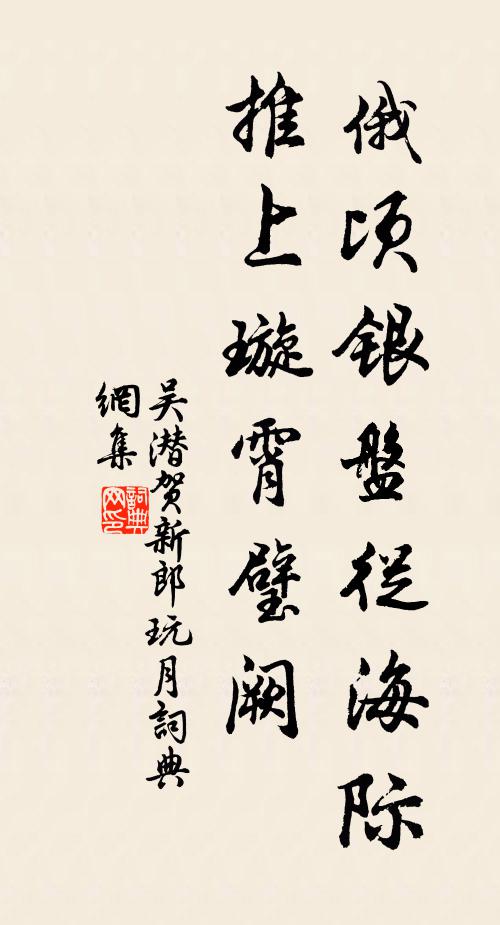 俄顷银盤從海际
推上璇霄璧阙
吴潜贺新郎玩月詞典
網集
詞典
网印